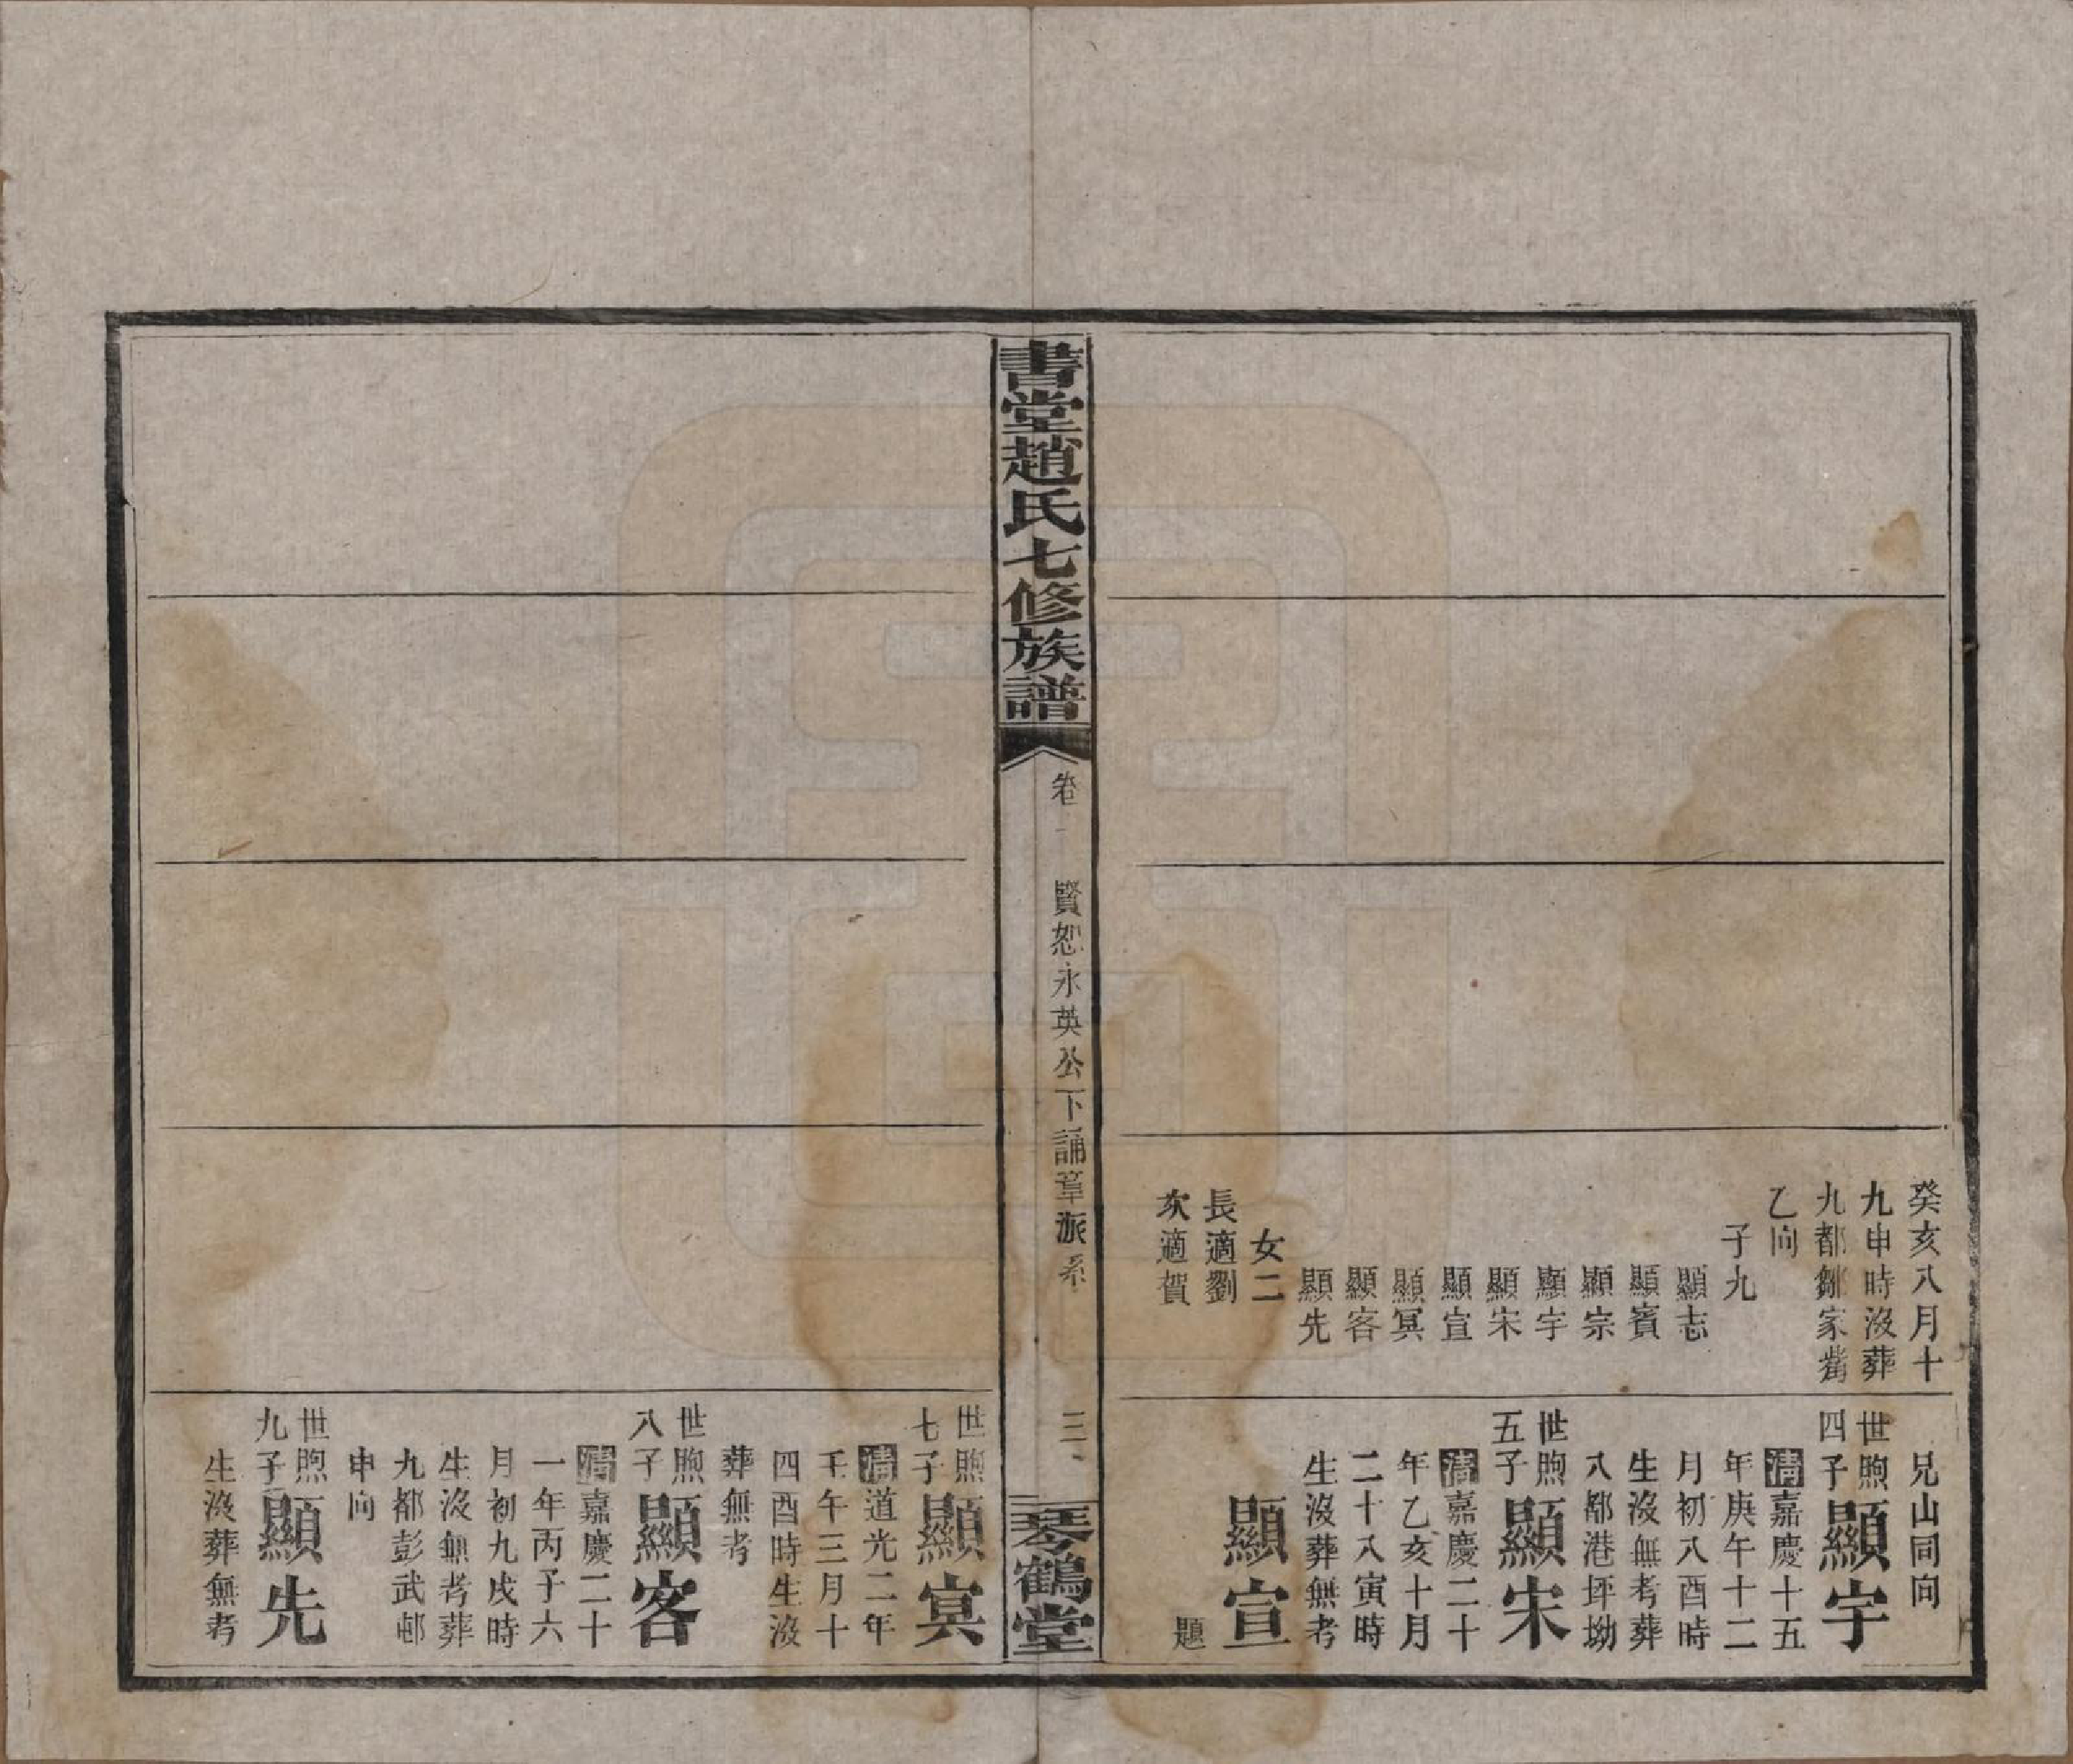 癸亥八月十
九申時沒葬
九都鄒家嘴
乙向
子九
顯志
顯賓
顯宗
顯宇
顯宋
顯宣
顯㝠
顯客
顯先
女二
長適劉
次適賀
兄山同向
世煦
四子顯宇
清嘉慶十五
年庚午十二
月初八酉時
生沒無考葬
八都港坪坳
世煦
五子顯宋
清嘉慶二十
年乙亥十月
二十八寅時
生沒葬無考
顯宣
題
書堂趙氏七修族譜
卷
賢恕永英公下誦章派系
三
琴鶴堂
世煦
七子顯㝠
清道光二年
壬午三月十
四酉時生沒
葬無考
世煦
八子顯客
清嘉慶二十
一年丙子六
月初九戌時
生沒無考葬
九都彭武邨
申向
世煦
九子顯先
生沒葬無考